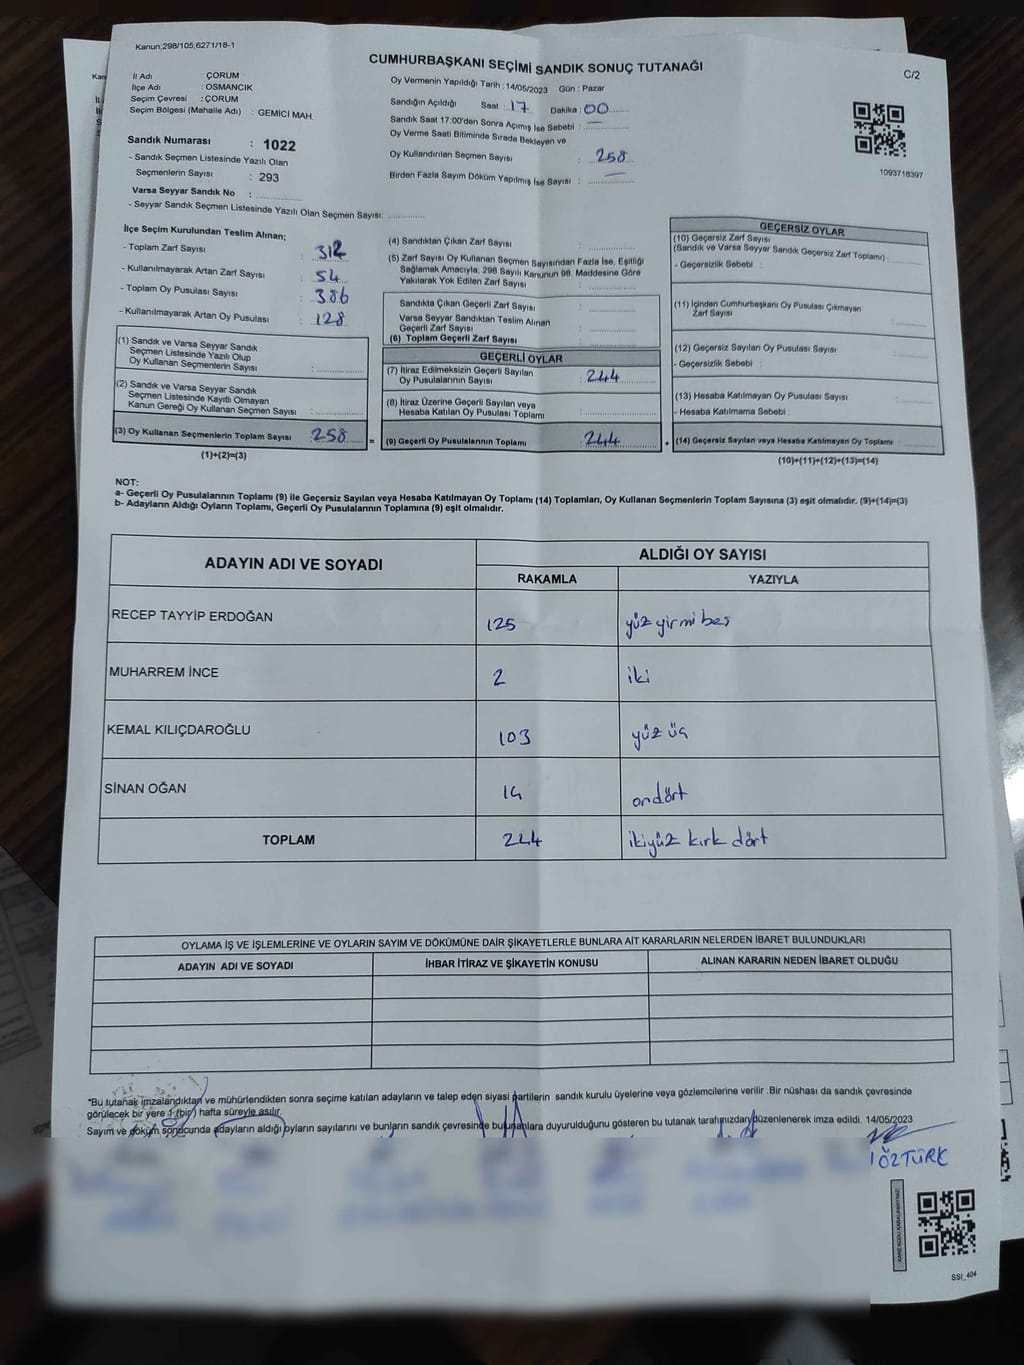 Kanun;298/105;6271/18-1
CUMHURBAŞKANI SEÇİMİ SANDIK SONUÇ TUTANAĞI
C/2
İl Adı : ÇORUM
İlçe Adı : OSMANCIK
Seçim Çevresi : ÇORUM
Seçim Bölgesi (Mahalle Adı) : GEMİCİ MAH.
Sandık Numarası : 1022
- Sandık Seçmen Listesinde Yazılı Olan
Seçmenlerin Sayısı : 293
Varsa Seyyar Sandık No :
- Seyyar Sandık Seçmen Listesinde Yazılı Olan Seçmen Sayısı:
Oy Vermenin Yapıldığı Tarih : 14/05/2023 Gün : Pazar
Sandığın Açıldığı Saat : 17 Dakika : 00
Sandık Saat 17:00'den Sonra Açımış İse Sebebi : —
Oy Verme Saati Bitiminde Sırada Bekleyen ve
Oy Kullandırılan Seçmen Sayısı : 258
Birden Fazla Sayım Döküm Yapılmış İse Sayısı : —
1093718397
İlçe Seçim Kurulundan Teslim Alınan;
- Toplam Zarf Sayısı : 312
- Kullanılmayarak Artan Zarf Sayısı : 54
- Toplam Oy Pusulası Sayısı : 386
- Kullanılmayarak Artan Oy Pusulası : 128
(1) Sandık ve Varsa Seyyar Sandık
Seçmen Listesinde Yazılı Olup
Oy Kullanan Seçmenlerin Sayısı :
(2) Sandık ve Varsa Seyyar Sandık
Seçmen Listesinde Kayıtlı Olmayan
Kanun Gereği Oy Kullanan Seçmen Sayısı :
(3) Oy Kullanan Seçmenlerin Toplam Sayısı : 258
(1)+(2)=(3)
(4) Sandıktan Çıkan Zarf Sayısı :
(5) Zarf Sayısı Oy Kullanan Seçmen Sayısından Fazla İse, Eşitliği
Sağlamak Amacıyla, 298 Sayılı Kanunun 98. Maddesine Göre
Yakılarak Yok Edilen Zarf Sayısı :
Sandıkta Çıkan Geçerli Zarf Sayısı :
Varsa Seyyar Sandıktan Teslim Alınan
Geçerli Zarf Sayısı :
(6) Toplam Geçerli Zarf Sayısı :
GEÇERLİ OYLAR
(7) İtiraz Edilmeksizin Geçerli Sayılan
Oy Pusulalarının Sayısı : 244
(8) İtiraz Üzerine Geçerli Sayılan veya
Hesaba Katılan Oy Pusulası Toplamı :
= (9) Geçerli Oy Pusulalarının Toplamı : 244 +
GEÇERSİZ OYLAR
(10) Geçersiz Zarf Sayısı
(Sandık ve Varsa Seyyar Sandık Geçersiz Zarf Toplamı) :
- Geçersizlik Sebebi :
(11) İçinden Cumhurbaşkanı Oy Pusulası Çıkmayan
Zarf Sayısı :
(12) Geçersiz Sayılan Oy Pusulası Sayısı :
- Geçersizlik Sebebi :
(13) Hesaba Katılmayan Oy Pusulası Sayısı :
- Hesaba Katılmama Sebebi :
(14) Geçersiz Sayılan veya Hesaba Katılmayan Oy Toplamı :
(10)+(11)+(12)+(13)=(14)
NOT:
a- Geçerli Oy Pusulalarının Toplamı (9) ile Geçersiz Sayılan veya Hesaba Katılmayan Oy Toplamı (14) Toplamları, Oy Kullanan Seçmenlerin Toplam Sayısına (3) eşit olmalıdır. (9)+(14)=(3)
b- Adayların Aldığı Oyların Toplamı, Geçerli Oy Pusulalarının Toplamına (9) eşit olmalıdır.
ADAYIN ADI VE SOYADI
ALDIĞI OY SAYISI
RAKAMLA YAZIYLA
RECEP TAYYİP ERDOĞAN 125 yüz yirmi beş
MUHARREM İNCE 2 iki
KEMAL KILIÇDAROĞLU 103 yüz üç
SİNAN OĞAN 14 ondört
TOPLAM 244 ikiyüz kırk dört
OYLAMA İŞ VE İŞLEMLERİNE VE OYLARIN SAYIM VE DÖKÜMÜNE DAİR ŞİKAYETLERLE BUNLARA AİT KARARLARIN NELERDEN İBARET BULUNDUKLARI
ADAYIN ADI VE SOYADI İHBAR İTİRAZ VE ŞİKAYETİN KONUSU ALINAN KARARIN NEDEN İBARET OLDUĞU
"Bu tutanak imzalandıktan ve mühürlendikten sonra seçime katılan adayların ve talep eden siyasi partilerin sandık kurulu üyelerine veya gözlemcilerine verilir .Bir nüshası da sandık çevresinde
görülecek bir yere 1 (bir) hafta süreyle asılır.
Sayım ve döküm sonucunda adayların aldığı oyların sayılarını ve bunların sandık çevresinde bulunanlara duyurulduğunu gösteren bu tutanak tarafınızdan düzenlenerek imza edildi. 14/05/2023
İ ÖZTÜRK
SSİ_404